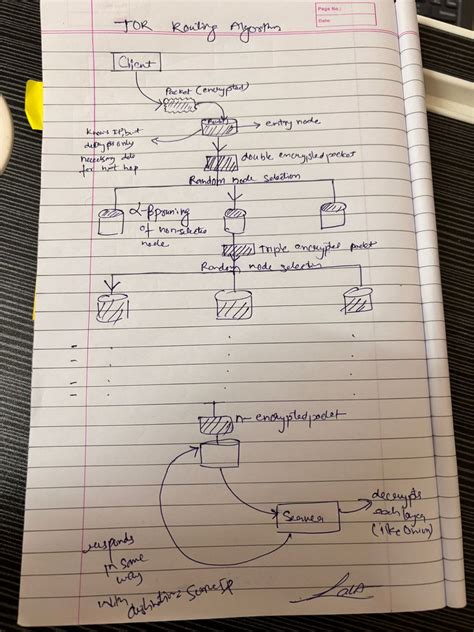 Page No.:
Date:
TOR Routing Algorithm
Client
Packet (encrypted)
entry node
Knows IP, but
decrypts only
necessary data
for next hop
double encrypted packet
Random node selection
α-β pruning
of non-selective
node
Triple encrypted packet
Random node selection
n- encrypted packet
Server
decrypts
each layer
(like Onion)
responds
in same
way
with
destination = Server IP